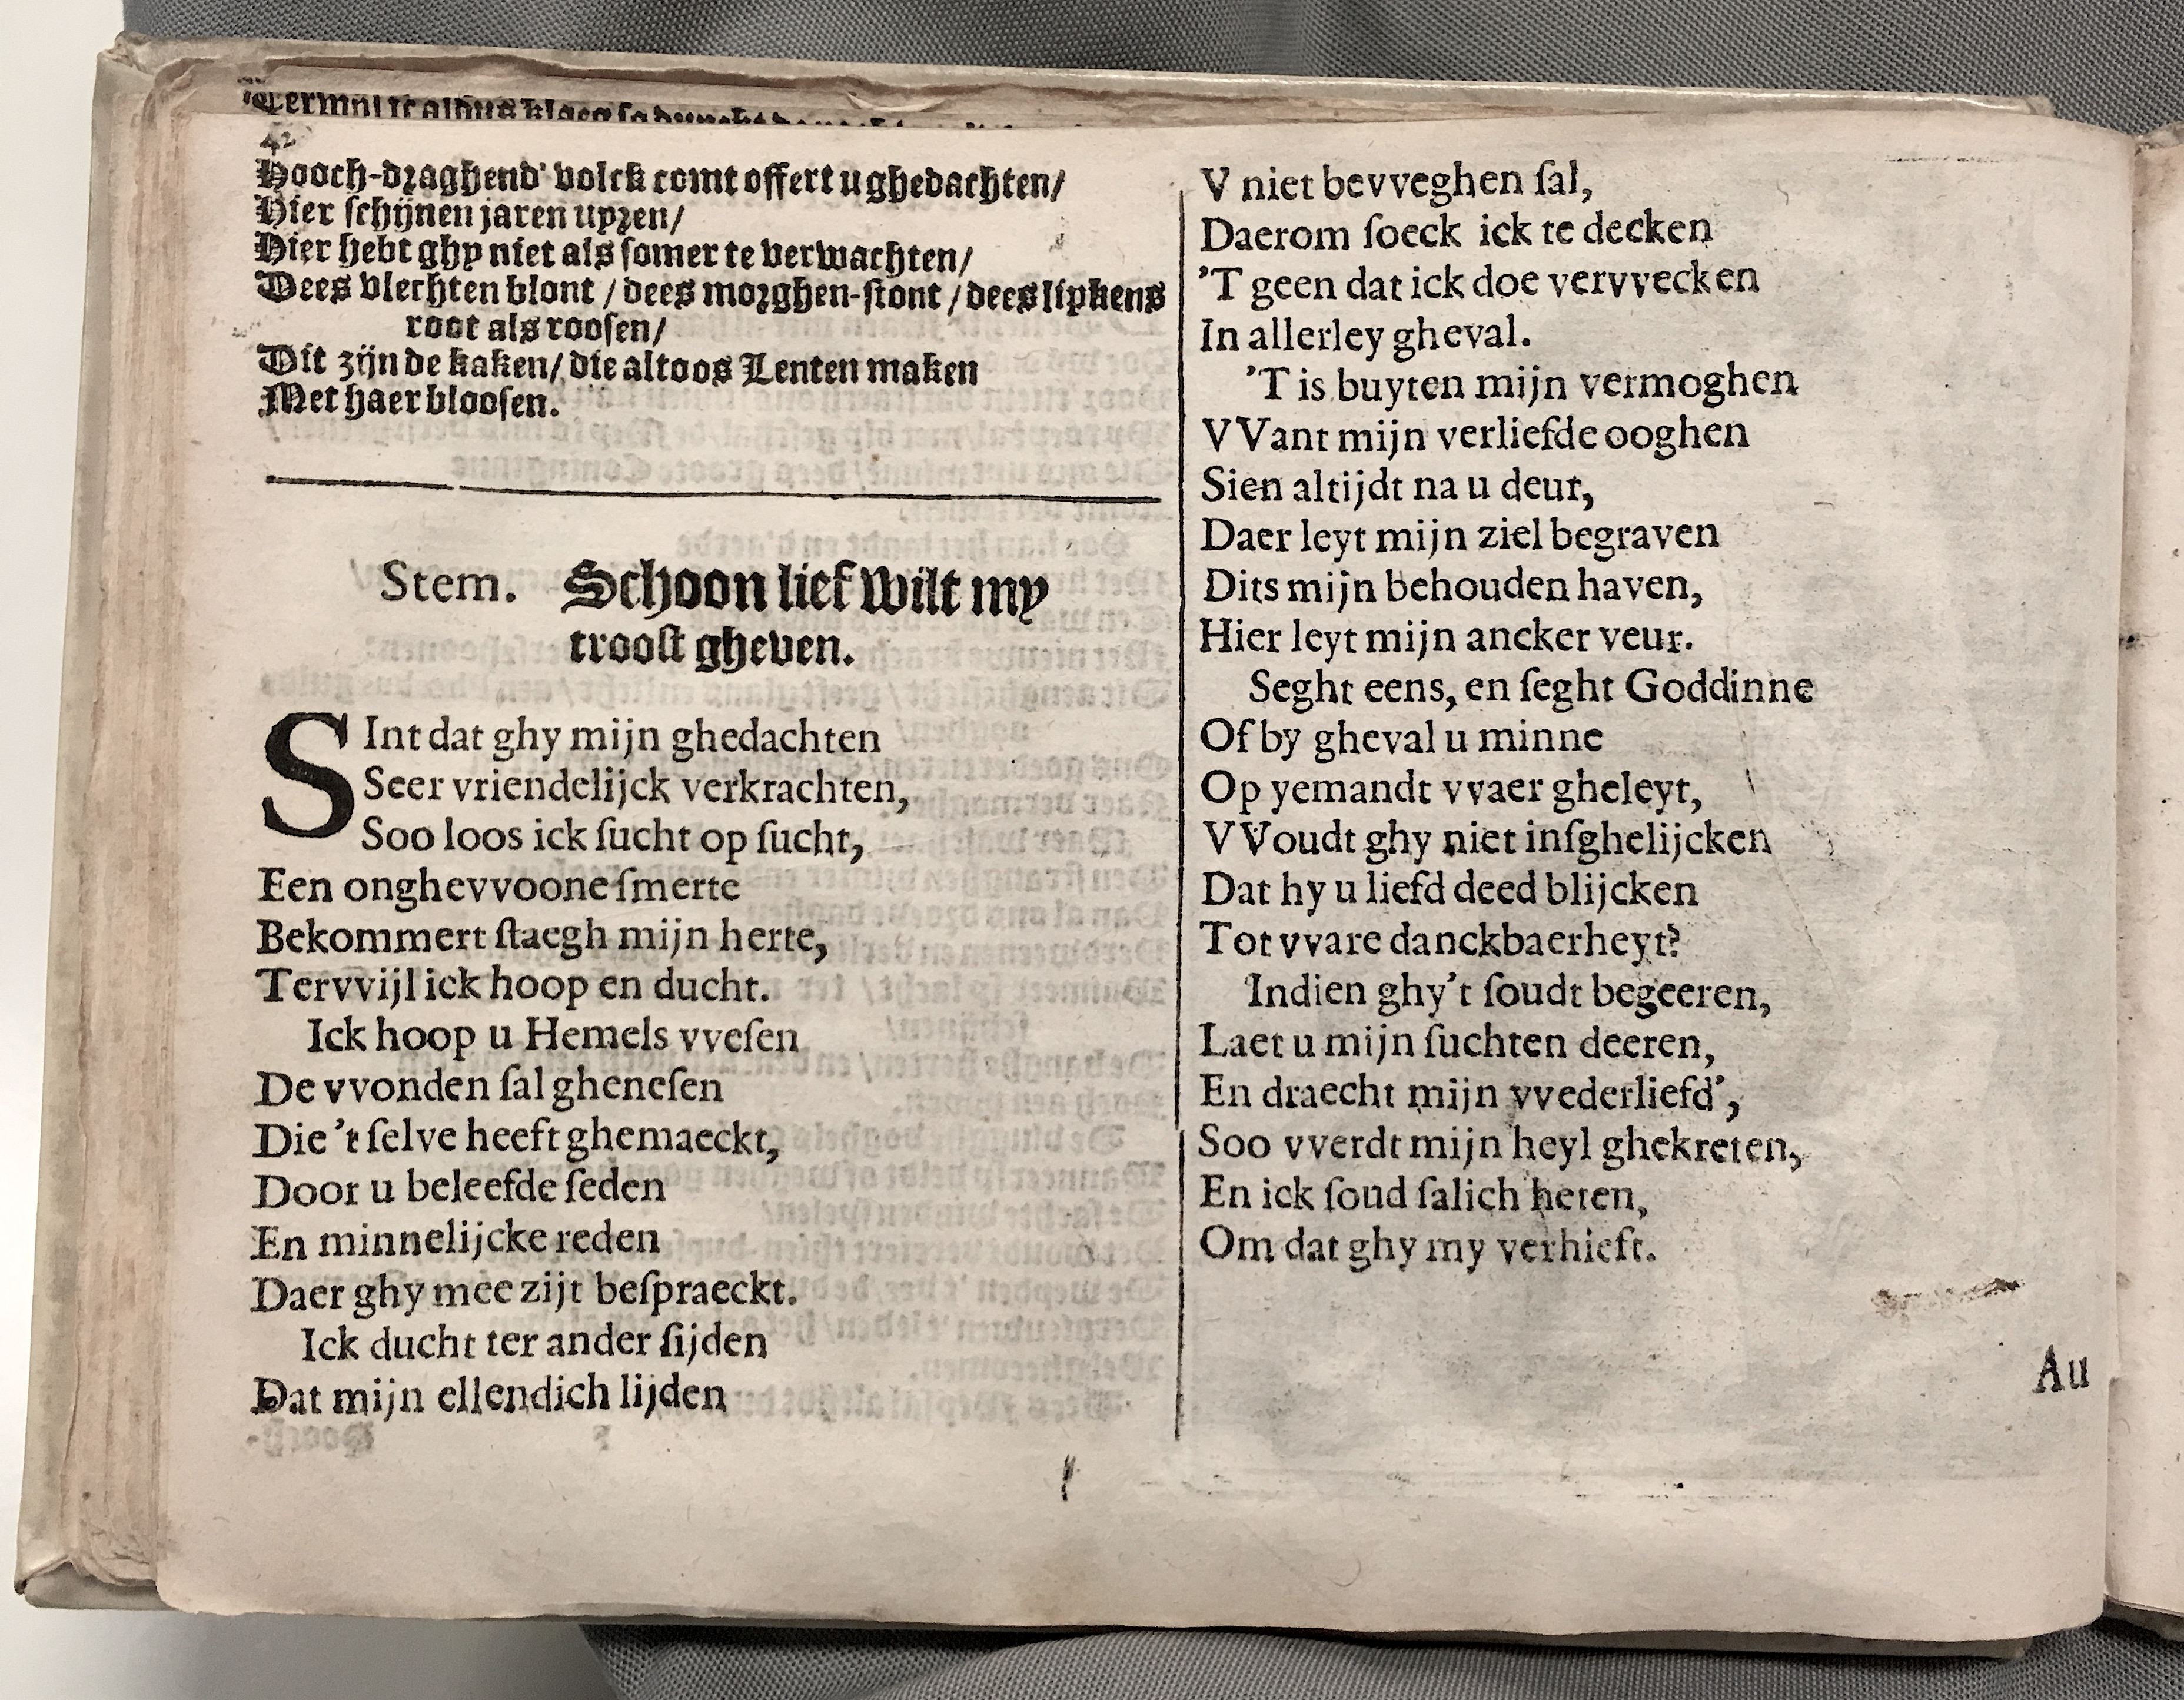 42
Hooch-draghend' volck comt offert u ghedachten/
Hier schijnen jaren uyren/
Hier hebt ghy niet als somer te verwachten/
Dees vlechten blont / dees morghen-stont / dees lipkens
root als roosen/
Dit zijn de kaken/ die altoos Lenten maken
Met haer bloosen.
Stem. Schoon lief wilt my
troost gheven.
SInt dat ghy mijn ghedachten
Seer vriendelijck verkrachten,
Soo loos ick ſucht op ſucht,
Een onghevvoone ſmerte
Bekommert ſtaegh mijn herte,
Tervvijl ick hoop en ducht.
Ick hoop u Hemels vveſen
De vvonden ſal gheneſen
Die 't ſelve heeft ghemaeckt,
Door u beleefde ſeden
En minnelijcke reden
Daer ghy mee zijt beſpraeckt.
Ick ducht ter ander ſijden
Dat mijn ellendich lijden
V niet bevveghen ſal,
Daerom ſoeck ick te decken
'T geen dat ick doe vervvecken
In allerley gheval.
'T is buyten mijn vermoghen
VVant mijn verliefde ooghen
Sien altijdt na u deur,
Daer leyt mijn ziel begraven
Dits mijn behouden haven,
Hier leyt mijn ancker veur.
Seght eens, en ſeght Goddinne
Of by gheval u minne
Op yemandt vvaer gheleyt,
VVoudt ghy niet inſghelijcken
Dat hy u liefd deed blijcken
Tot vvare danckbaerheyt?
Indien ghy't ſoudt begeeren,
Laet u mijn ſuchten deeren,
En draecht mijn vvederliefd',
Soo vverdt mijn heyl ghekreten,
En ick ſoud ſalich heten,
Om dat ghy my verhieft.
Au